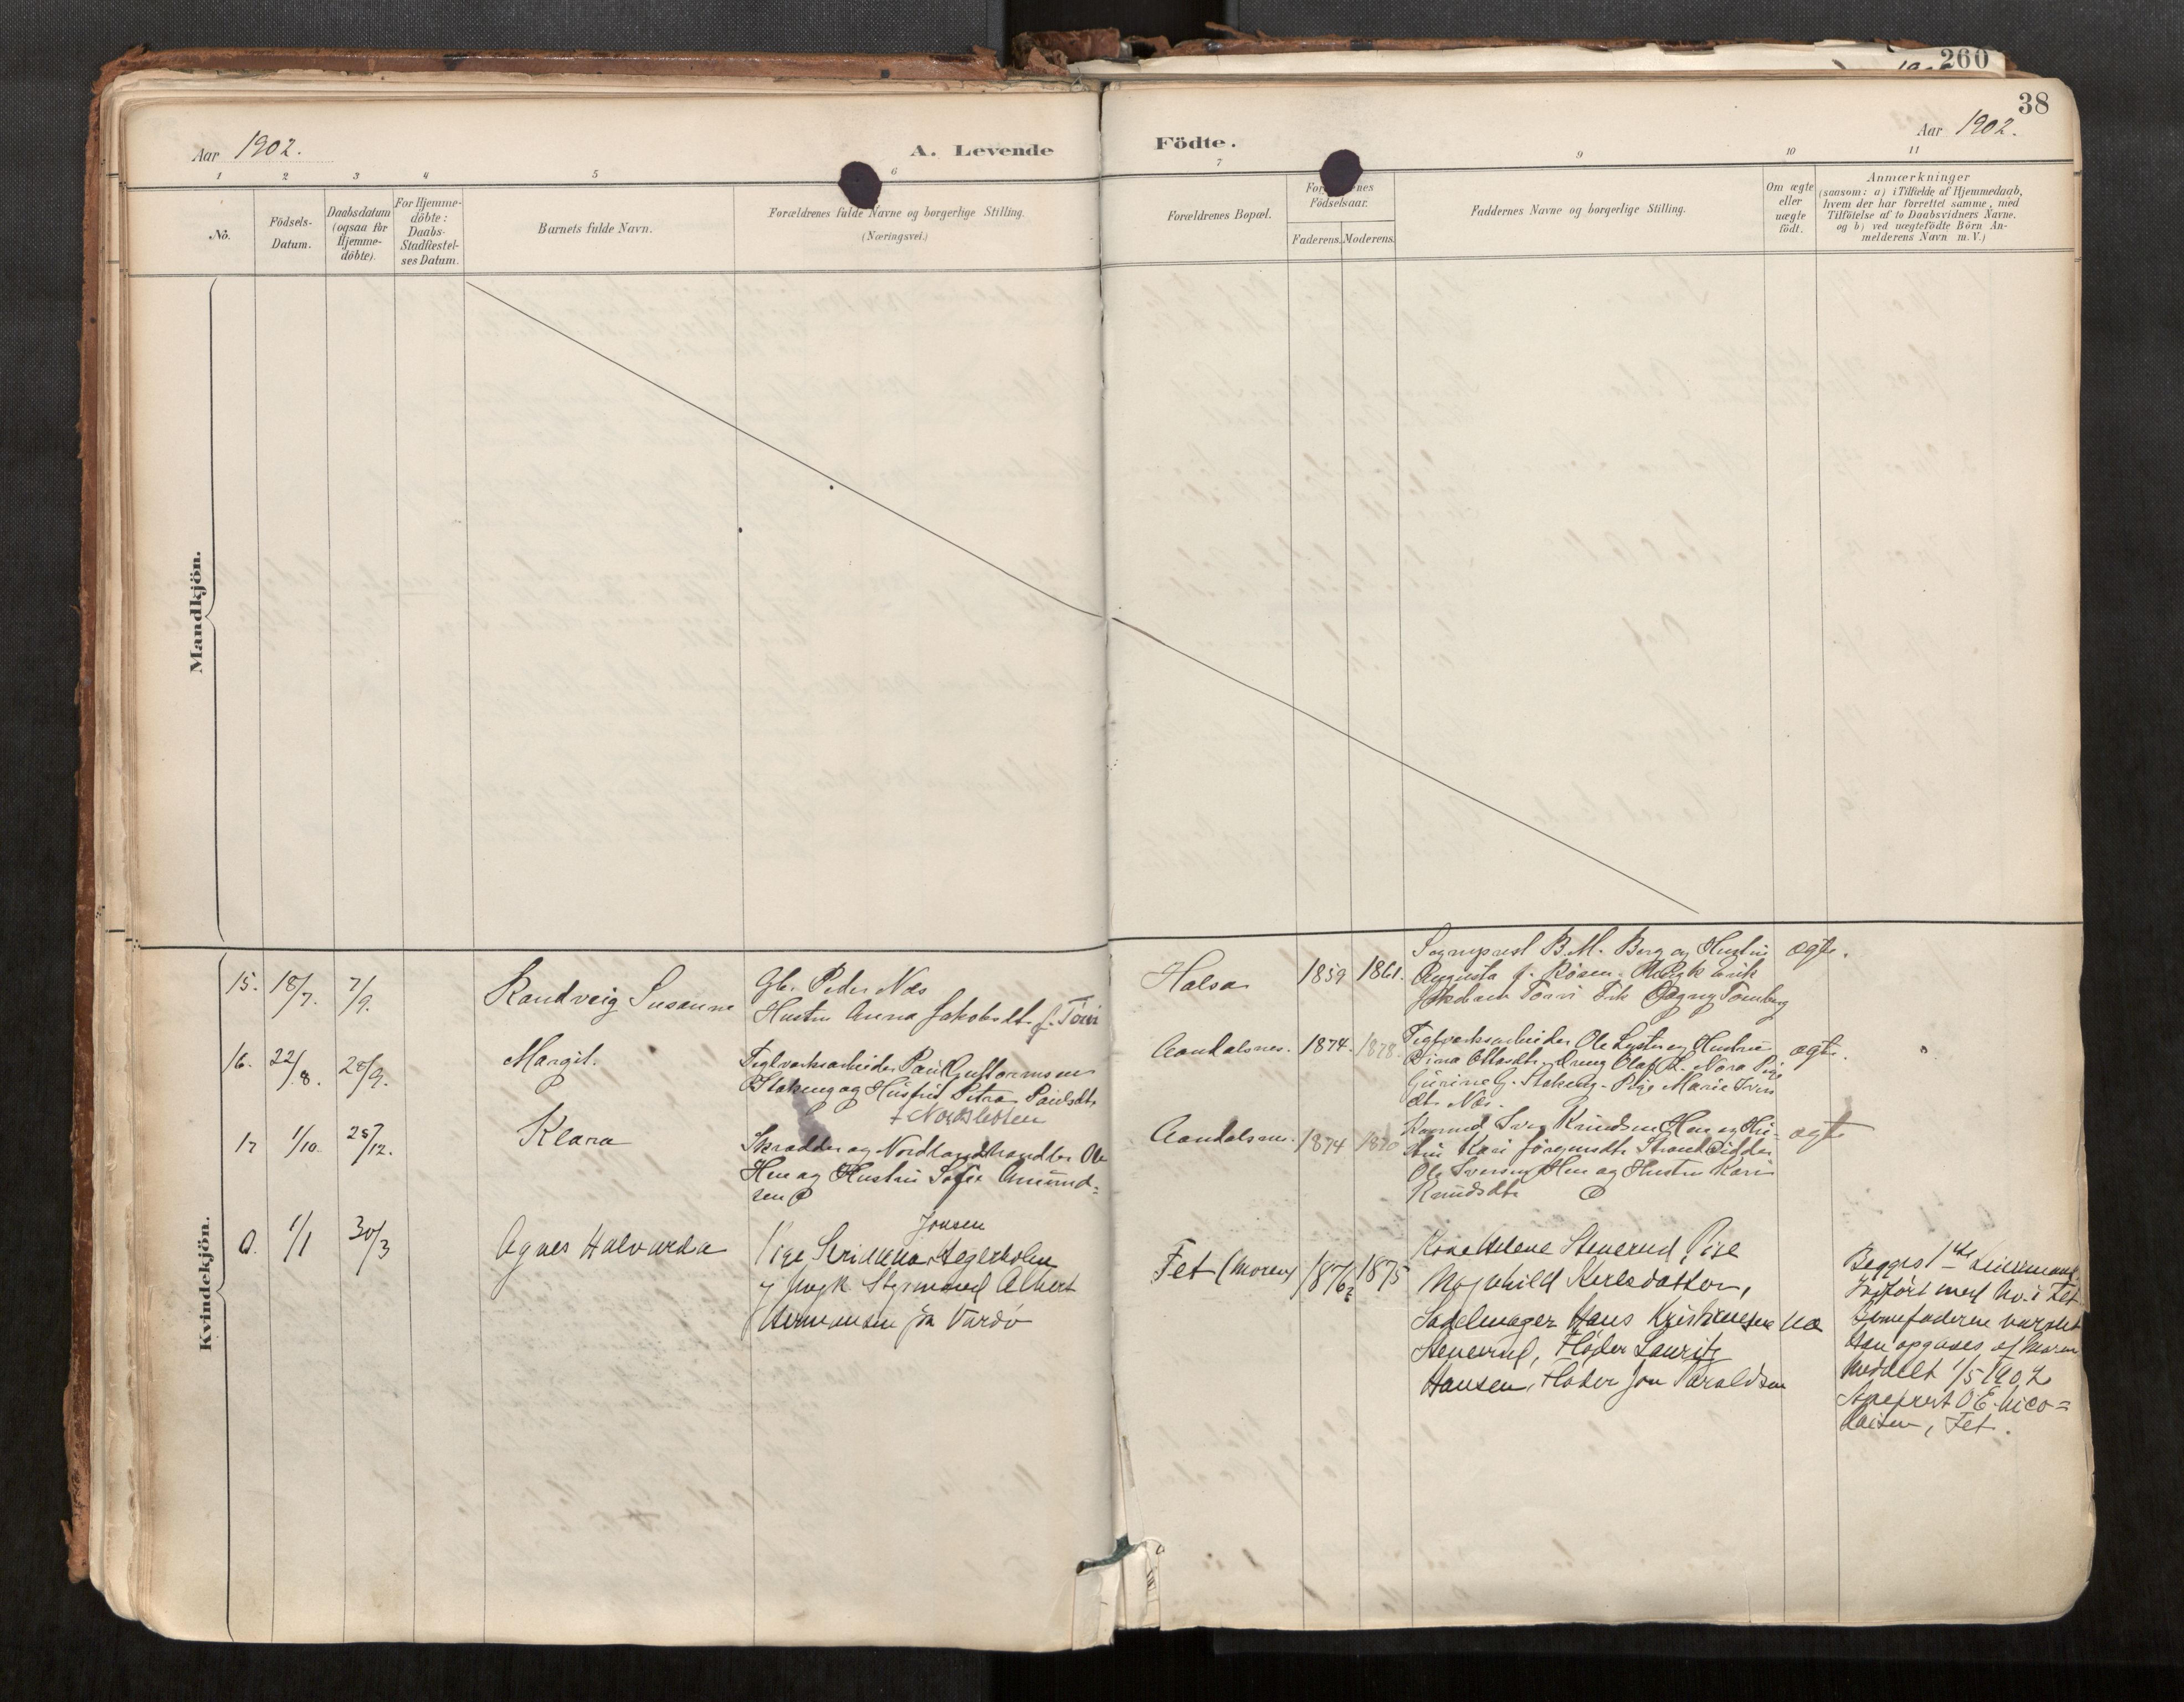 260
38
Aar 1902.
A. Levende
Födte.
Aar 1902.
1 2 3 4 5 6 7 9 10 11
No.
Födsels-
Datum.
Daabsdatum
(ogsaa for
Hjemme-
döbte).
For Hjemme-
döbte:
Daabs-
Stadfæstel-
ses Datum.
Barnets fulde Navn.
Forældrenes fulde Navne og borgerlige Stilling.
(Næringsvei.)
Forældrenes Bopæl.
Födselsaar.
Faderens. Moderens.
Faddernes Navne og borgerlige Stilling.
Om ægte
eller
uægte
födt.
Anmærkninger
(saasom: a) i Tilfælde af Hjemmedaab,
hvem der har forrettet samme, med
Tilföielse af to Daabsvidners Navne.
og b) ved uægtefödte Börn An-
melderens Navn m. V.)
Mandkjön.
Kvindekjön.
15. 18/7. 7/9.
Randveig Susanne
Gbr. Peder Næs
Hustru Anna Jakobsdtr f. Torvi
Halsa
1859 1861.
Sogneprest B. M. Berg og Hustru
Augusta f. Rosen. Ungk Erik
Torvi Frk Tomberg
ægte.
16. 22/8. 28/9.
Margit.
Teglverksarbeider Paul Guttormsen
Stokeng og Hustru Petra Paulsdtr
Aandalsnes. 1874. 1878.
Teglverksarbeider Ole Lyster og Hustru
Dina Dreng Olaf Nora Pige
G. Stokeng. Pige Marie Ivers
dtr Næs.
ægte.
17 1/10. 28/12.
Klara
Skrædder og Nordlandshandler Ole
Hen og Hustru Sofie Amund=
sen
Aandalsnes. 1874 1870
Iver Knudsen Hen og Hu-
stru Kari Jörgensdtr
Ole Iversen Hen og Hustru Kari
Knudsdtr
ægte
a. 1/1 30/3
Agnes Halvarda
Jonsen
Pige Hegerholm
og Ungk Styrmand Albert
Hermansen fra Vardö
Fet (Moren) 1876? 1875
Kone Helene Stenerud, Pige
Magnhild
Sadelmager Hans Kristensen
Stenerud, Fløder Lauritz
Hansen, Fløder Jon Haraldsen
uæ
Begges 1ste
Indført med No. i Fet
Barnefaderen
opgaves af Moren
Meddelt 1/5 1902
Sogneprest O E. Nico=
laisen, Fet.